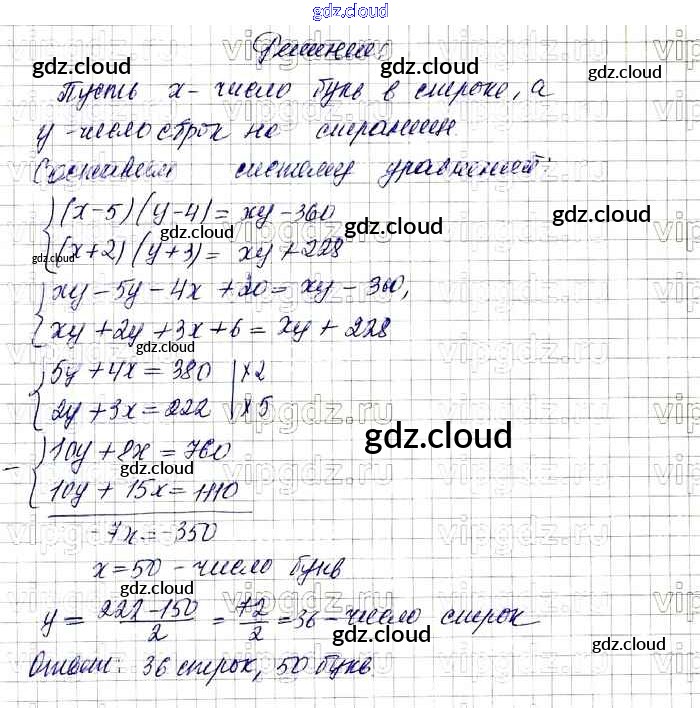 gdz.cloud
Решение:
gdz.cloud gdz.cloud
Пусть x - число букв в строке, а
y - число строк на странице
Составим систему уравнений:
(x-5)(y-4) = xy - 360
gdz.cloud
(x+2)(y+3) = xy + 228
gdz.cloud
xy - 5y - 4x + 20 = xy - 360,
xy + 2y + 3x + 6 = xy + 228
gdz.cloud
5y + 4x = 380 | x2
2y + 3x = 222 | x5
gdz.cloud
- 10y + 8x = 760
gdz.cloud
10y + 15x = 1110
-7x = -350
x = 50 - число букв
gdz.cloud
y = (222-150)/2 = 72/2 = 36 - число строк
gdz.cloud
Ответ: 36 строк, 50 букв
gdz.cloud
vipgdz.ru